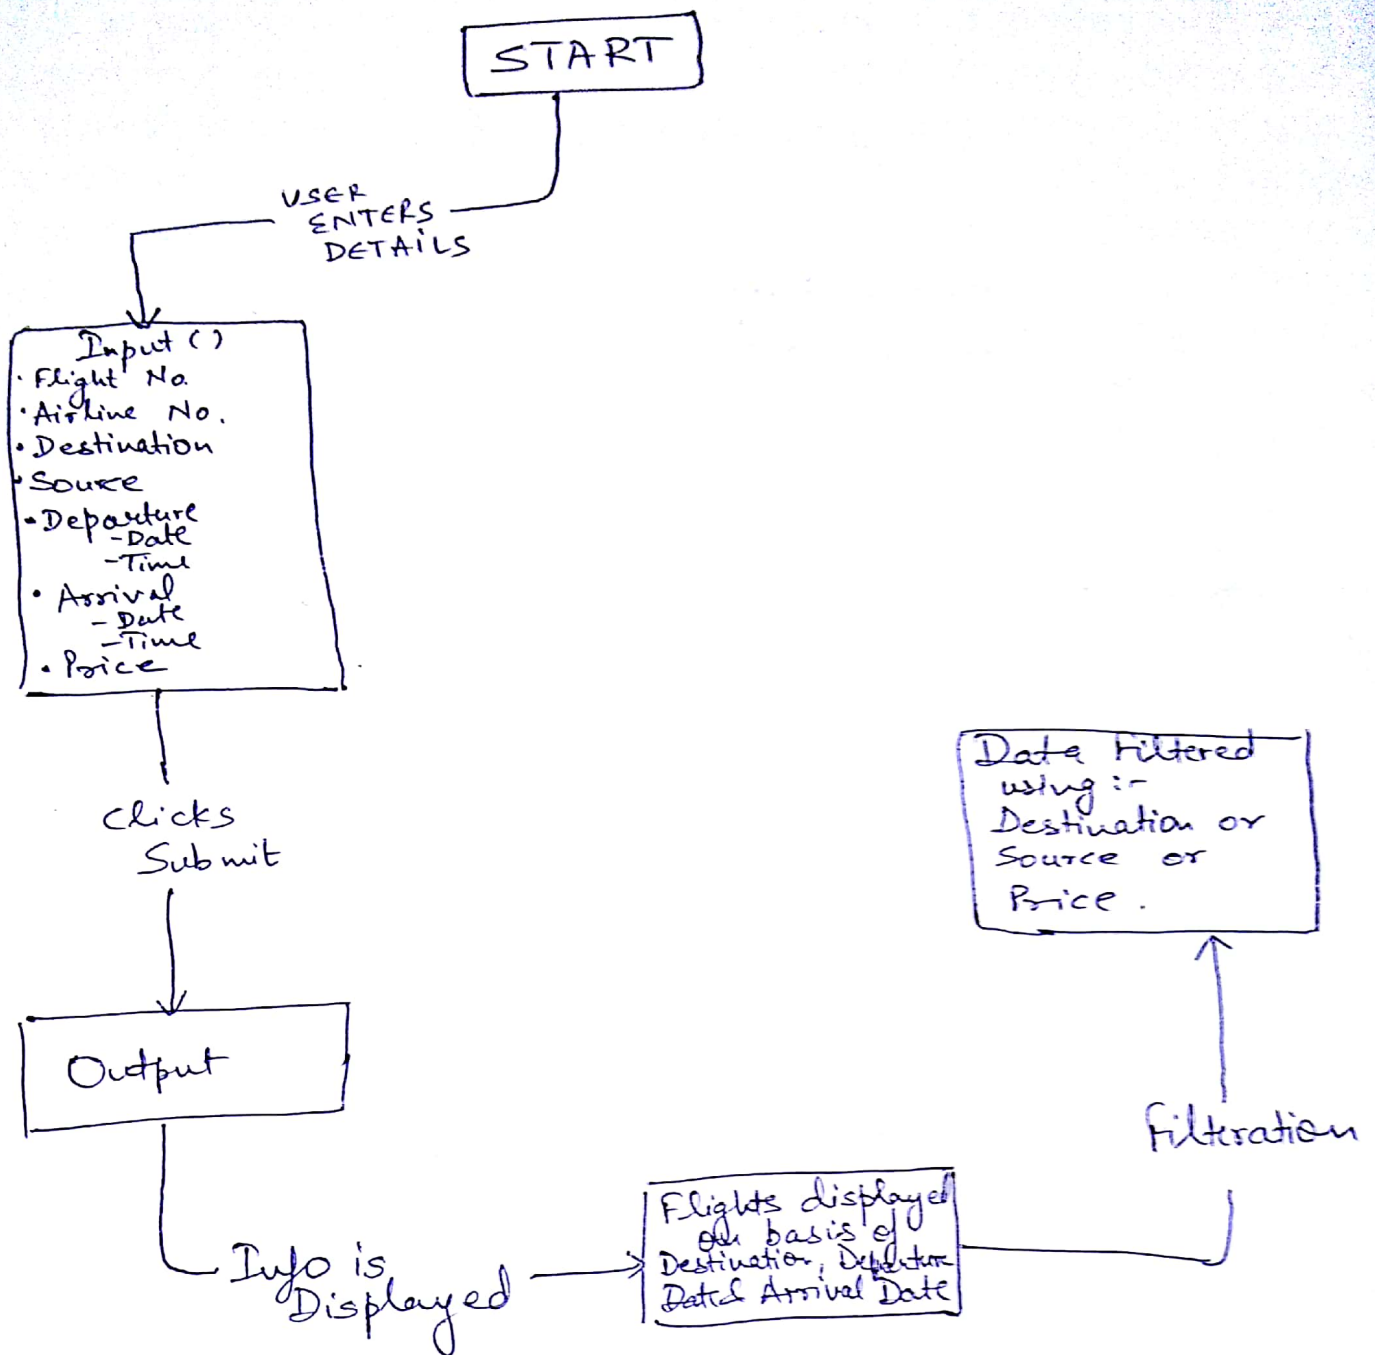 START
USER
ENTERS
DETAILS
Input ()
· Flight No.
· Airline No.
· Destination
· Source
· Departure
- Date
- Time
· Arrival
- Date
- Time
· Price
Clicks
Submit
Output
Info is
Displayed
Flights displayed
on basis of
Destination, Departure
Date & Arrival Date
Filteration
Data Filtered
using :-
Destination or
Source or
Price .